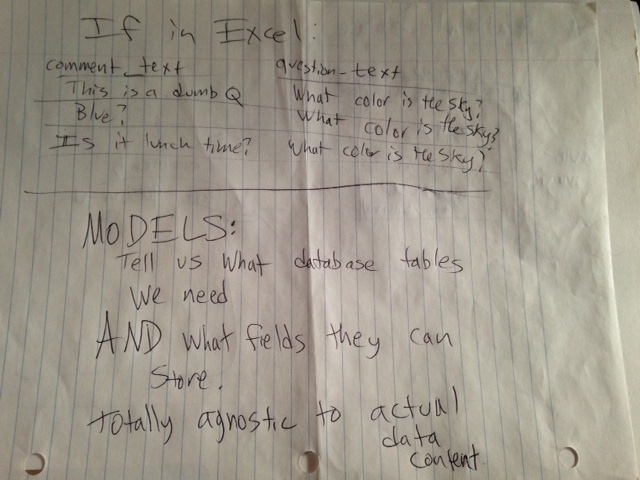 If in Excel:
comment_text question-text
This is a dumb Q What color is the sky?
Blue? What color is the sky?
Is it lunch time? What color is the sky?
MODELS:
Tell us what database tables
We need
AND what fields they can
Store.
totally agnostic to actual
data
content